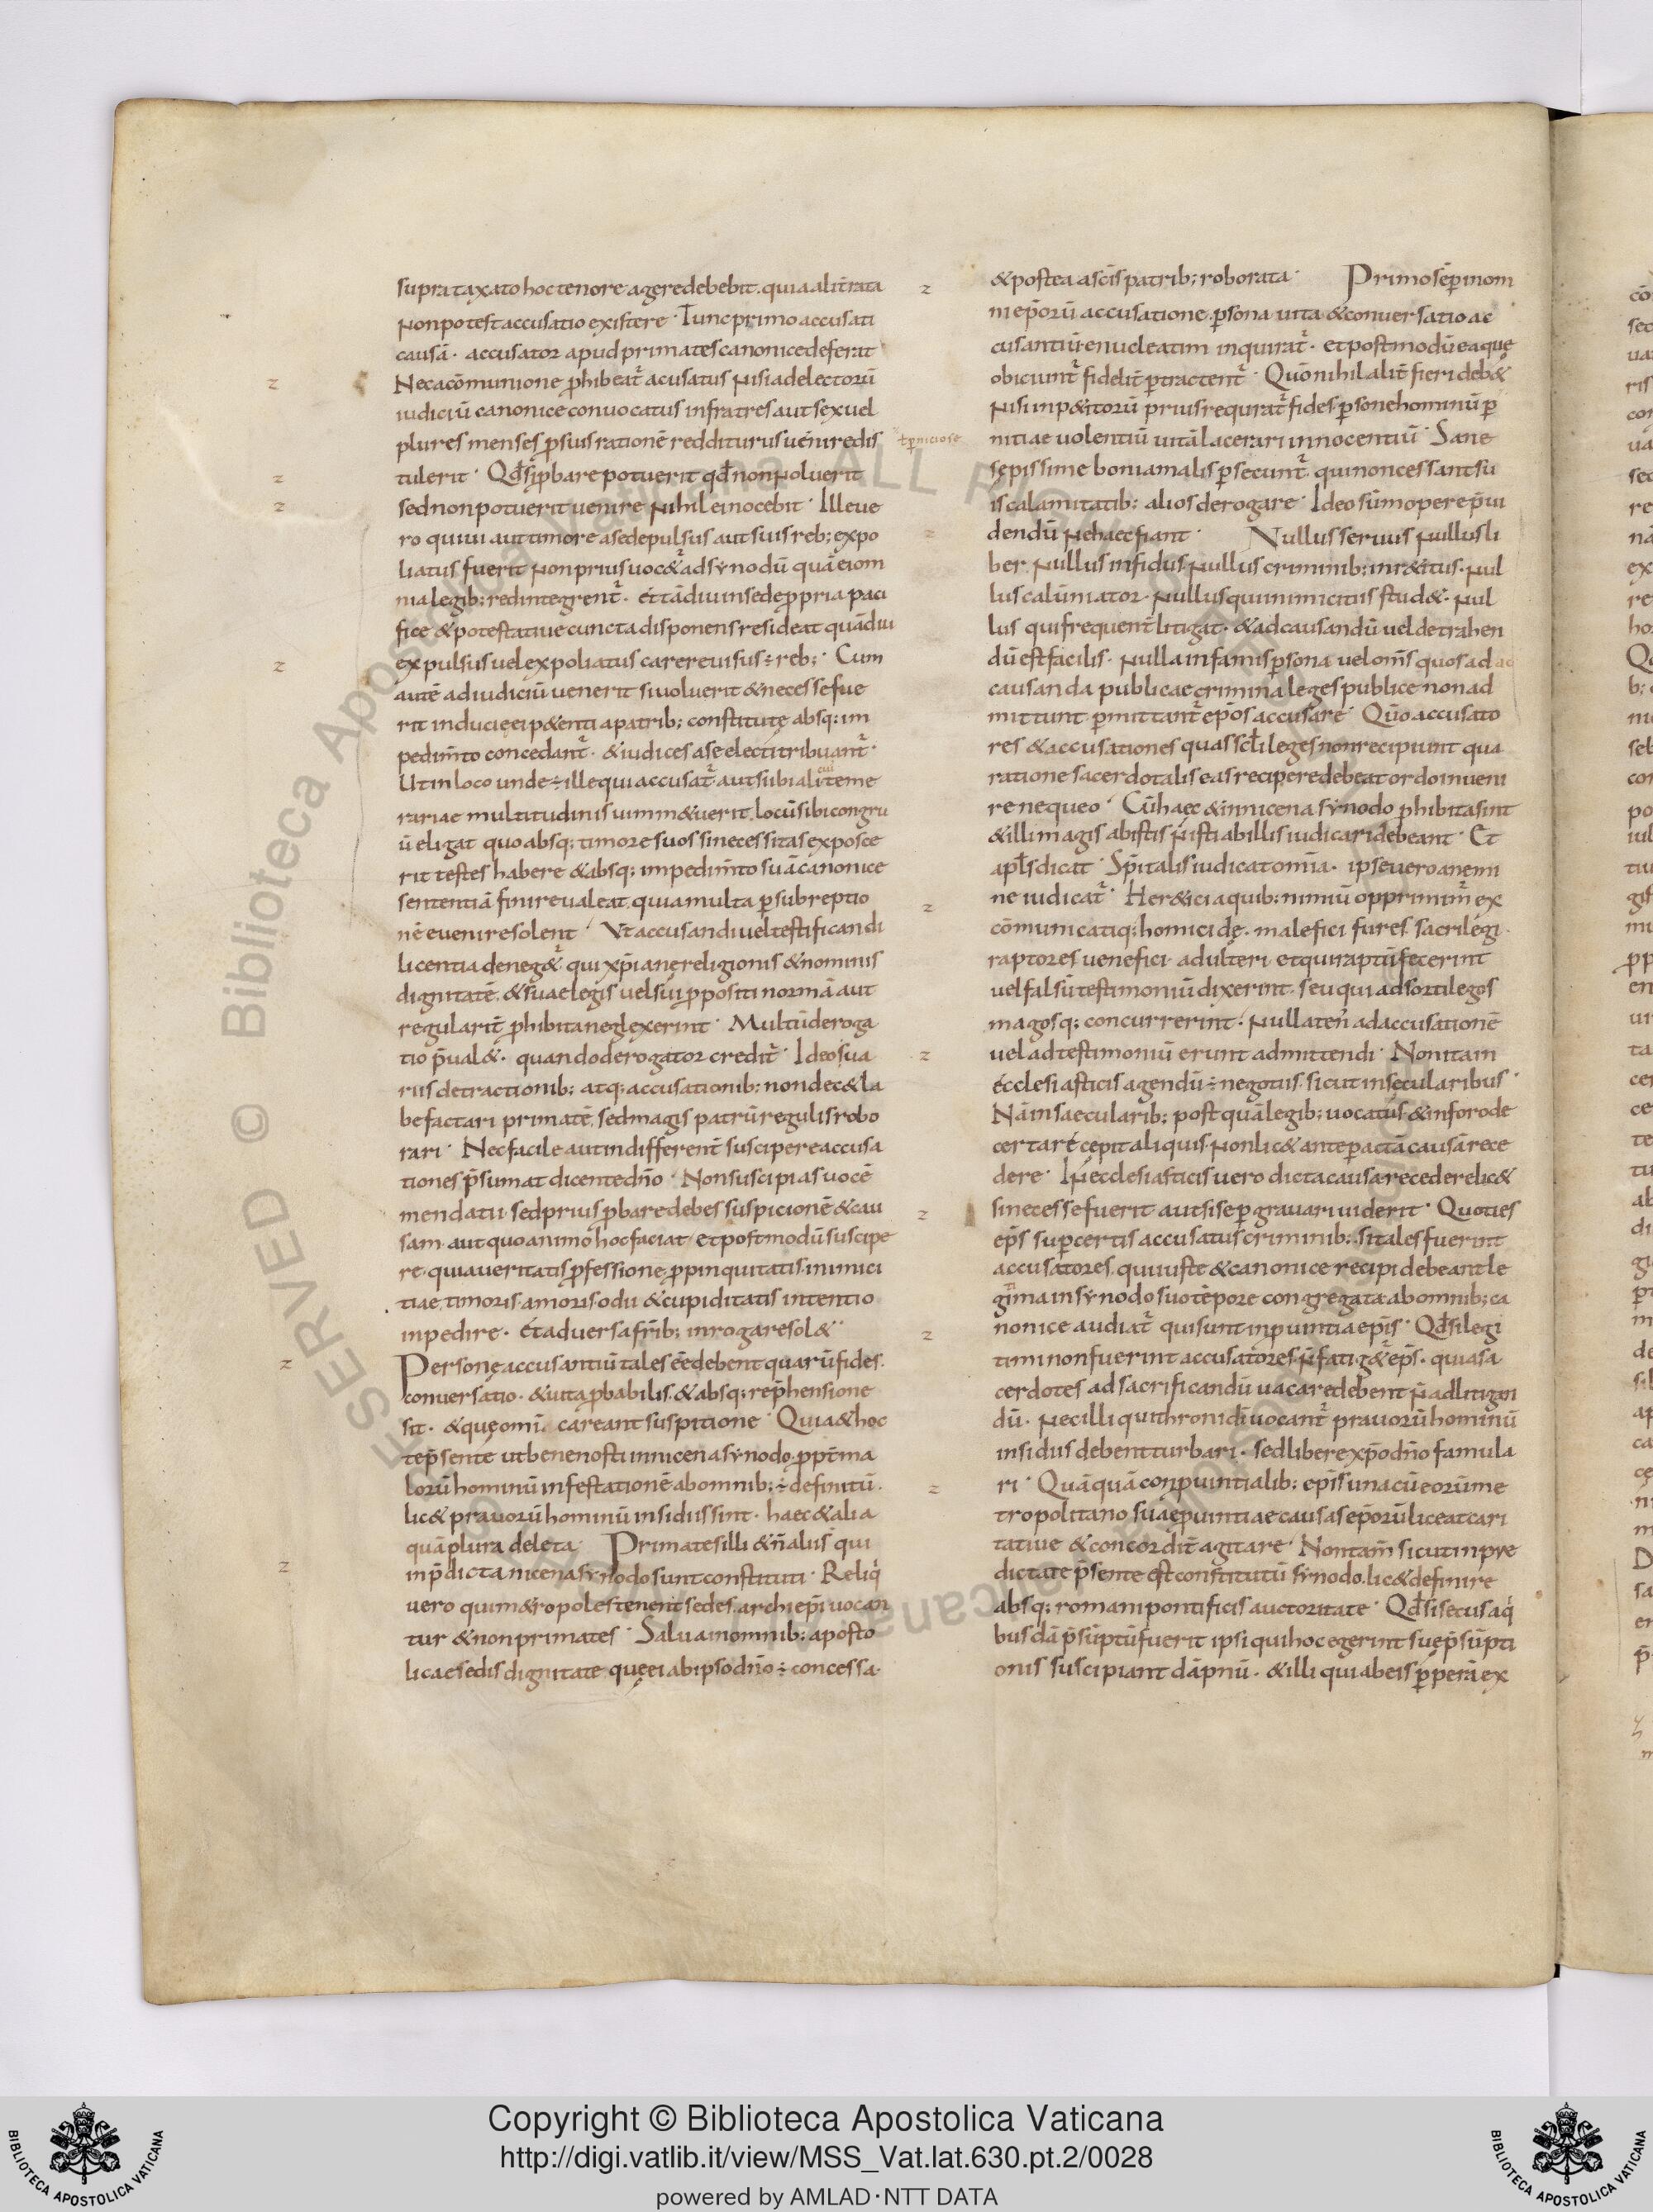 supra taxato hoc tenore agere debebit. quia alit̄ rata
Non potest accusatio existere · Tunc primo accusati
causā · accusator apud primates canonice deferit
Nec a cōmunione p̄hibeat̄ acusatus Nisi ad electorū
iudiciū canonice conuocatus infra tres aut sex uel
plures menses p̄ suis rationē redditurus uenire dis
ł p̱niciose
tulerit · Qd̄ si p̱bare potuerit qd̄ non Noluerit
sed non potuerit uenire Nihil ei nocebit · Ille ue
ro qui ui aut timore a sede pulsus aut suis reb; expo
liatus fuerit Non prius uoc&̄ ad sẏnodū quā ei om
nia legib; redintegrent̄ · et tādiu in sede p̱pria paci
fice & potestatiue cuncta disponens resideat quādiu
expulsus uel expoliatus carere uisus ÷ reb; · Cum
autē ad iudiciū uenerit si uoluerit & necesse fue
rit induciȩ ei p&enti a patrib; constitutȩ absq; im
pedim̄to concedant̄ · & iudices a se electi tribuant̄ ·
Ut in loco unde ÷ ille qui accusat̄ aut si ibi alicui teme
rariae multitudinis uim m&uerit. locū sibi congru
ū eligat quo absq; timore suos si necessitas expos̄ce
rit testes habere & absq; impedim̄to suā canonice
sententiā finire ualeat. quia multa p̱ subreptio
nē euenire solent · Vt accusandi uel testificandi
licentia deneg&̄ qui xp̄ianȩ religionis & nominis
dignitatē. & suae legis uel sui p̱positi normā aut
regularit̄ p̱hibita neglexerint · Multū deroga
tio p̄ual& · quando derogator credit̄ · Ideo sua
riis detractionib; atq; accusationib; non dec& la
befactari primatē. sed magis patrū regulis robo
rari · Nec facile aut indifferent̄ suscipere accusa
tiones p̄sumat dicente dn̄o · Non suscipias uocē
mendatii. sed prius p̱bare debes suspicionē & cau
sam. aut quo animo hoc faciat / et post modū suscipe
re. quia ueritatis p̱fessione p̱pinquitatis. inimici
tiae. timoris. amoris odii & cupiditatis intentio
inpedire · Et aduersa frīb; inrogare sol& ·
Personȩ accusantiū tales eē debent quarū fides.
conuersatio · & uita p̱babilis. & absq; rep̄hensione
sit · & quȩ omī careant suspitione · Quia & hoc
tep̄ sente ut bene nosti in nicena sẏnodo p̱pt̄ ma
lorū hominū infestationē ab omnib; ÷ definitū ·
lic& prauorū hominū insidiis sint · haec & alia
quā plura deleta Primates illi & n̄ alii s̄ qui
in p̄dicta nicena sẏnodo sunt constituti · Reliq̇
uero qui m&ropoles tenent sedes. archiep̄i uocan
tur & non primates · Salua in omnib; aposto
licae sedis dignitate quȩ ei ab ipso dn̄o ÷ concessa ·
& postea a sc̄is patrib; roborata · Primo sep̄ in om
ni ep̄orū accusatione p̱sona uita & conuersatio ac
cusantiū enucleatim inquirat̄ · et post modū ea quȩ
obiciunt̄ fidelit̄ p̱tractent̄ · Quō nihil alit̄ fieri deb&
Nisi inp&itorū prius requirat̄ fides p̱sone hominū p̱
nitiae uolentiū uitā lacerari innocentiū · Sane
sȩpissime boni a malis p̱secunt̄ qui non cessant su
is calamitatib; alios derogare · Ideo sūmopere p̄ui
dendū Ne haec fiant · Nullus seruus Nullus li
ber. Nullus infidus Nullus criminib; inr&itus · Nul
lus calūniator. Nullus qui inimicitiis stud& · Nul
lus qui frequent̄ litigat · & ad causandū uel detrahen
dū est facilis · Nulla infamis p̱sona uel om̄s quos ad ac
causanda publicae crimina leges publice non ad
mittunt p̱mittant̄ ep̄os accusare · Quō accusato
res & accusationes quas scłi leges non recipiunt qua
ratione sacerdotalis eas recipere debeat ordo inueni
re nequeo · Cū haec & in nicena sẏnodo p̱hibita sint
& illi magis ab istis N̄ isti ab illis iudicari debeant · Et
apl̄s dicat · Sp̄italis iudicat om̄ia · ipse uero a nemi
ne iudicat̄ · Her&ici a quib; nimiū opprimim̄ ex
cōmunicatiq; homicidȩ · malefici fures. sacrilegi ·
raptores uenefici. adulteri et qui raptū fecerint
uel falsū testimoniū dixerint. seu qui ad sortilegos
magosq; concurrerint · Nullaten̄ ad accusationē
uel ad testimoniū erunt admittendi · Non itam
ecclesiasticis agendū ÷ negotiis. sicut in secularibus ·
Nā in saecularib; post quā legib; uocatus & in foro de
certare cȩpit aliquis. Non lic& ante p̱actā causā rece
dere · In ecclesiasticis uero dicta causa recedere lic&
si necesse fuerit aut si se p̱grauari uiderit · Quoties
ep̄s sup̱ certis accusatus criminib; si tales fuerint
accusatores. qui iuste & canonice recipi debeant le
gīma in sẏnodo suo tēpore congregata ab omnib; ca
nonice audiat̄ qui sunt in p̱uintia ep̄is · Qd̄ si legi
timi non fuerint accusatores. N̄ fatig&̄ ep̄s · quia sa
cerdotes ad sacrificandū uacare debent N̄ ad litigan
dū · Nec illi qui throni dī uocant̄ prauorū hominū
insidiis debent turbari · sed libere xp̄o dn̄o famula
ri · Quāquā conp̱uintialib; ep̄is una cū eorū me
tropolitano suae p̱uintiae causas ep̄orū liceat cari
tatiue & concordit̄ agitare · Non tam̄ sicut in p̄e
dicta te p̄sente est constitutū sẏnodo. lic& definire
absq; romani pontificis auctoritate · Qd̄ si secus a q̇
busdā p̄sūptū fuerit ipsi qui hoc egerint suȩ p̄sūpti
onis suscipiant dāpnū · & illi qui ab eis p̱perā ex
Copyright © Biblioteca Apostolica Vaticana
http://digi.vatlib.it/view/MSS_Vat.lat.630.pt.2/0028
powered by AMLAD·NTT DATA
BIBLIOTECA APOSTOLICA VATICANA
BIBLIOTECA APOSTOLICA VATICANA